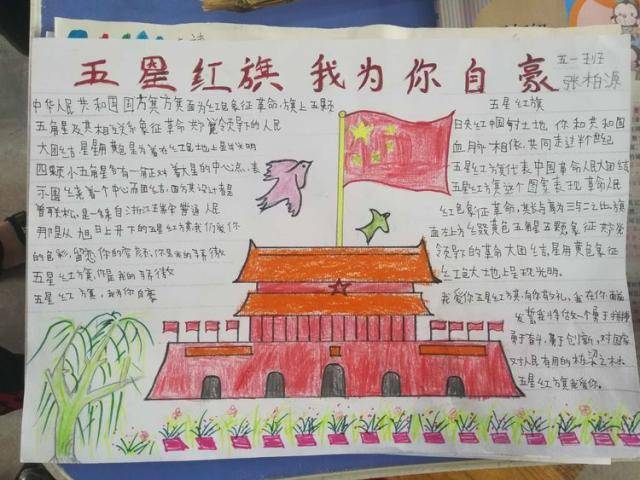 五星红旗 我为你自豪
五一班
张柏源
中华人民共和国国旗旗面为红色象征革命,旗上五颗
五角星及其相互关系象征革命党领导的人民
大团结星用黄色是为着在红色地上显出光明
四颗小五角星各有一角正对着大星的中心点,表
示围绕着一个中心而团结,国旗设计者是
曾联松,是一
那是从旭日上升下的五星红旗我们爱你
的色彩,留恋你的
五星红旗,你是我的
五星红旗,我为你自豪
五星红旗
你和共和国
血脉相依,共同走过半个世纪
五星红旗代表中国革命人民大团结
五星红旗这个图案表现革命人民
红色象征革命,其长与高为三与二之比,旗
面左上方缀黄色五角星五颗象征
领导的革命大团结,星用黄色象征
红色大地上呈现光明。
我爱你五星红旗,向你敬礼,我在你面前
发誓我将做一个勇于拼搏
勇于奋斗,勇于创新,对国家
对人民有用的栋梁之材
五星红旗我爱你。